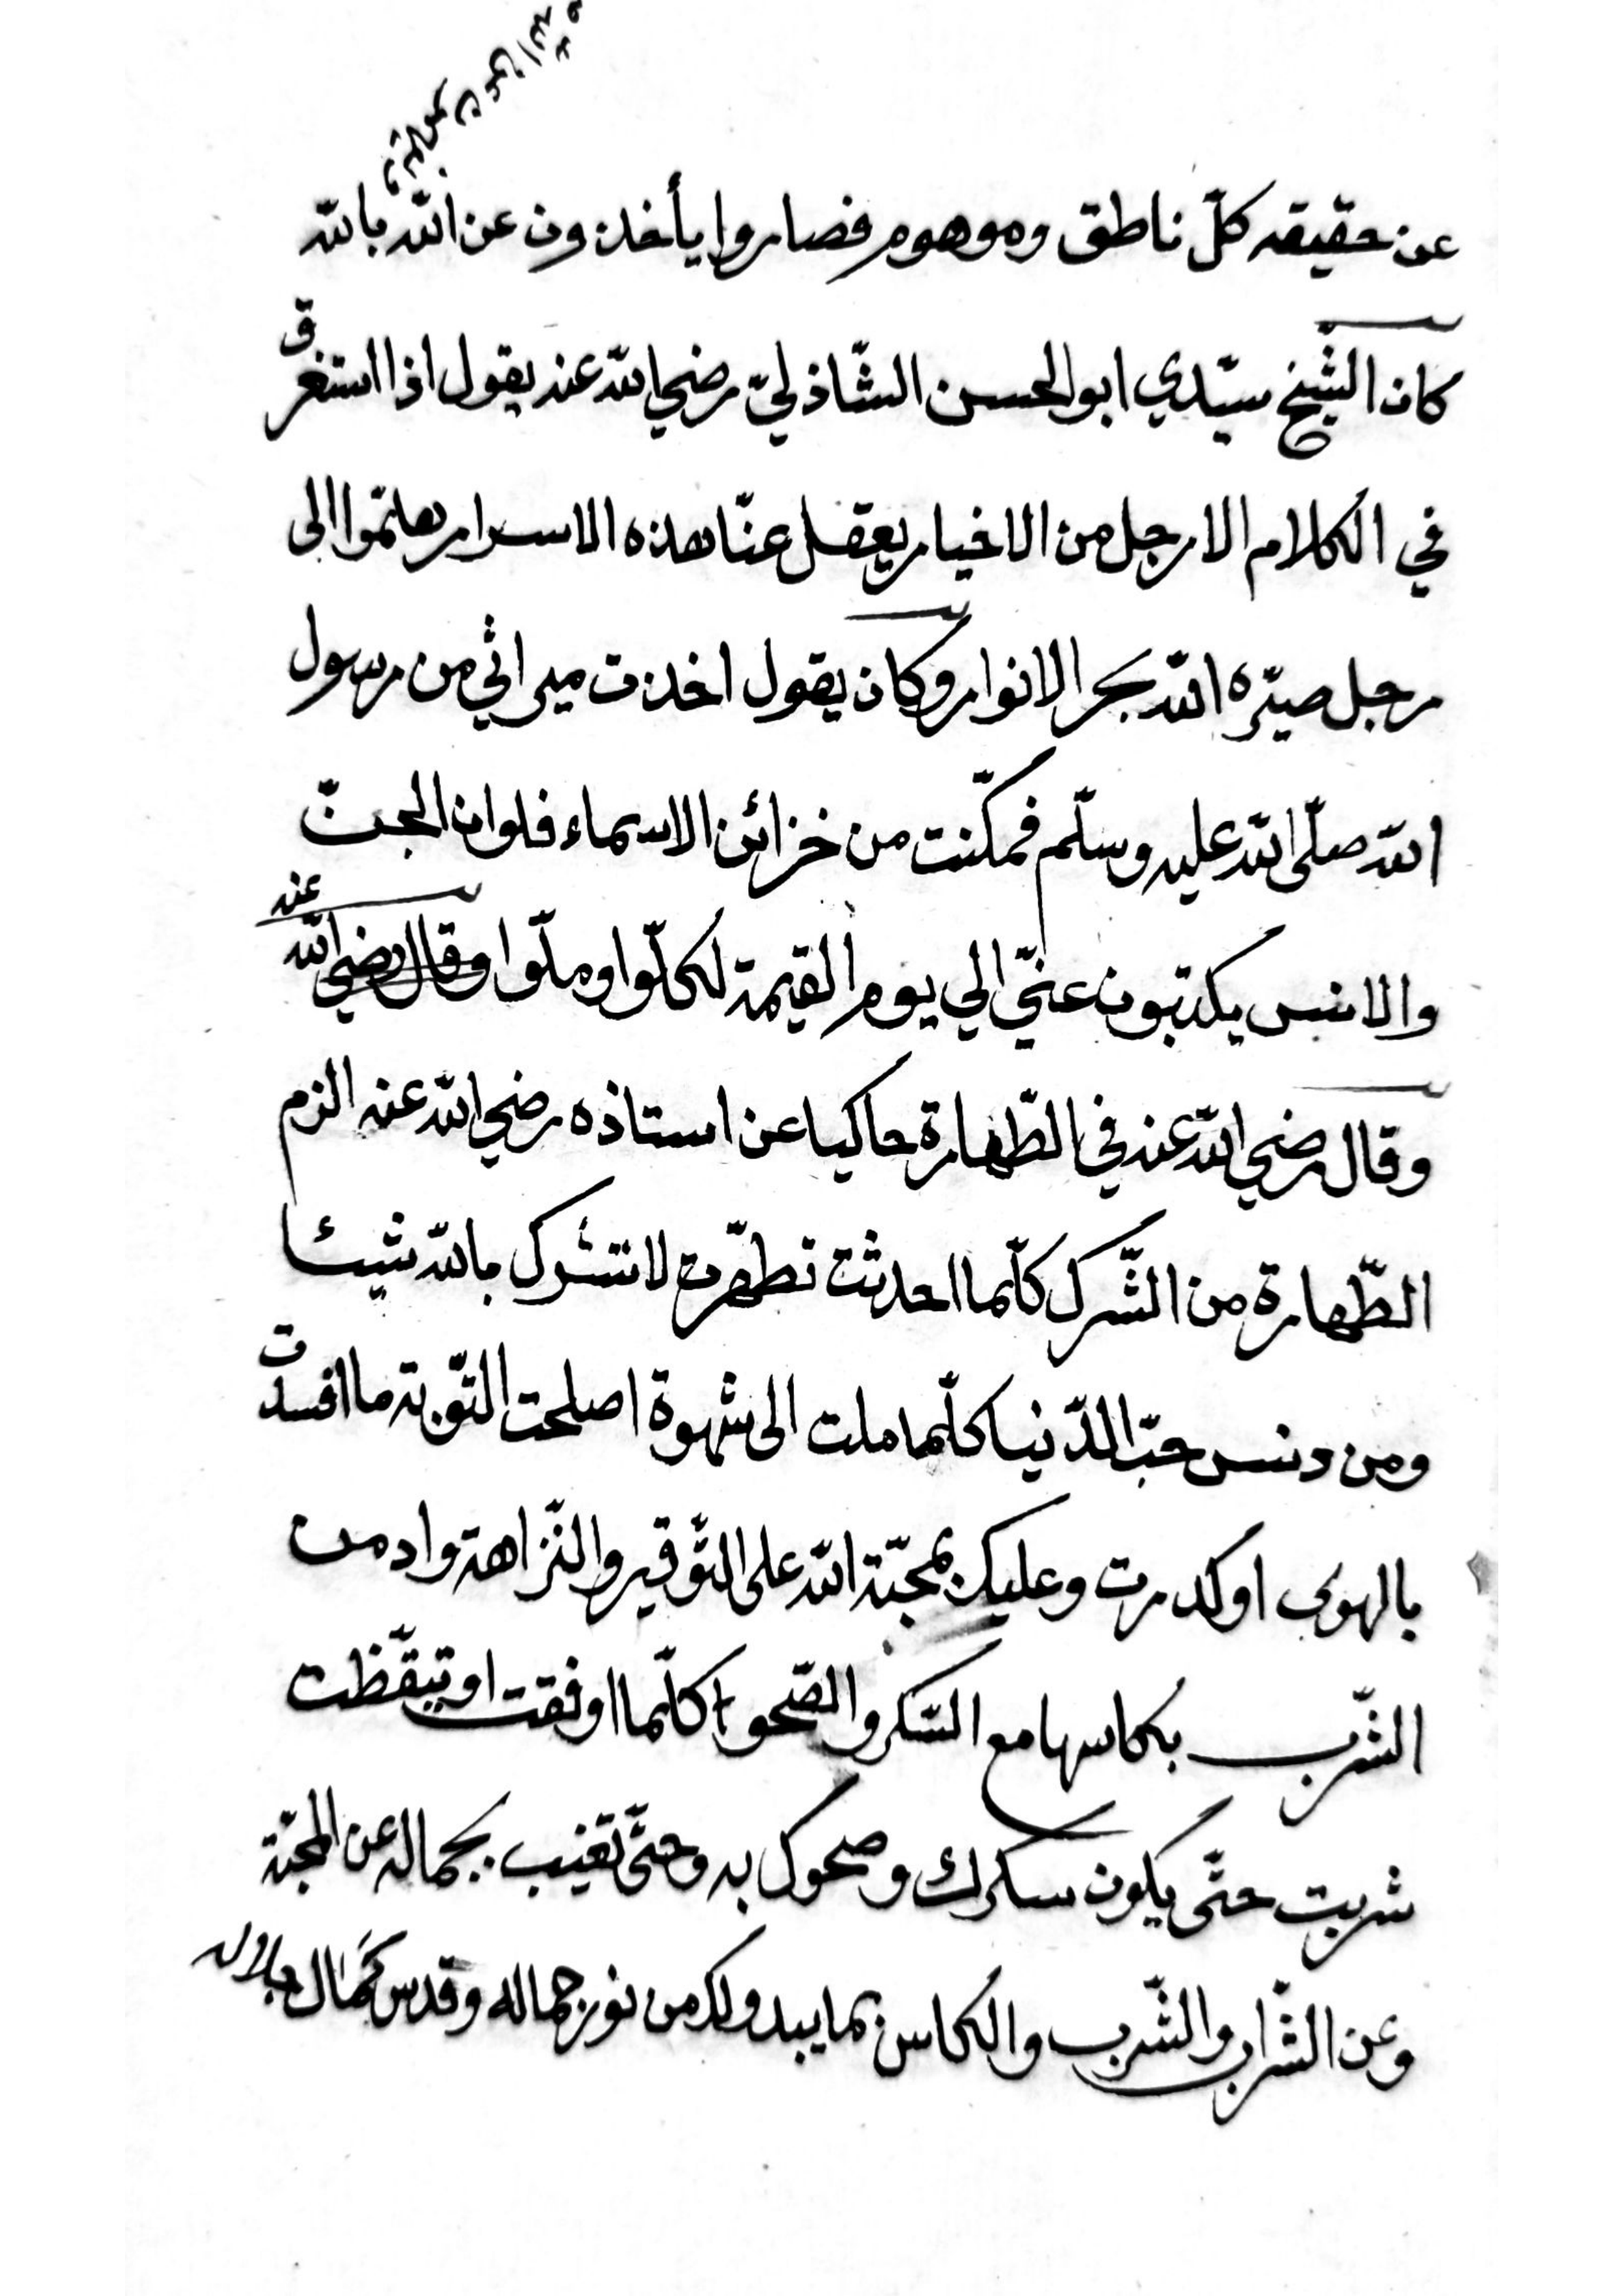 عن حقيقه كلّ ناطق وموهوم فصاروا يأخذون عن الله بالله
كان الشّيخ سيّدي ابوالحسن الشّاذليّ رضي الله عنه يقول اذا استغرق
في الكلام الا رجل من الاخيار يعقل عنّا هذه الاسرار هلمّوا الى
رجل صيّره الله بحر الانوار وكان يقول اخذت ميراثي من رسول
الله صلّى الله عليه وسلّم فمكّنت من خزائن الاسماء فلو ان الجنّ
والانس يكتبون عنّي الي يوم القيمة لكلّوا وملّوا وقال رضي الله عنه
وقال رضي الله عنه في الطّهارة حاكيا عن استاذه رضي الله عنه الزم
الطّهارة من الشّرك كلّما احدثت تطهّرت لا تشرك بالله شيئا
ومن دنس حبّ الدّنيا كلّما ملت الى شهوة اصلحت التّوبة ما افسدت
بالهوى او كدرت وعليك بمحبّة الله على التّوقير والنّزاهة وادمن
الشّرب بكاسها مع السّكر والصّحو كلّما اوفقت او تيقّظت
شربت حتّى يكون سكرك وصحوك به وحتّى تغيب بجماله عن المحبّة
وعن الشّراب والشّرب والكاس بما يبدو لك من نور جماله وقدس كمال جلاله